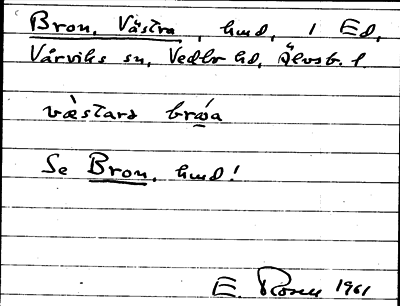 Bron, Västra, hmd, i Ed,
Vårviks sn, Vedbo hd, Älvsb. l.
væ̀stara bróa
Se Bron, hmd!
E. Rosén 1961